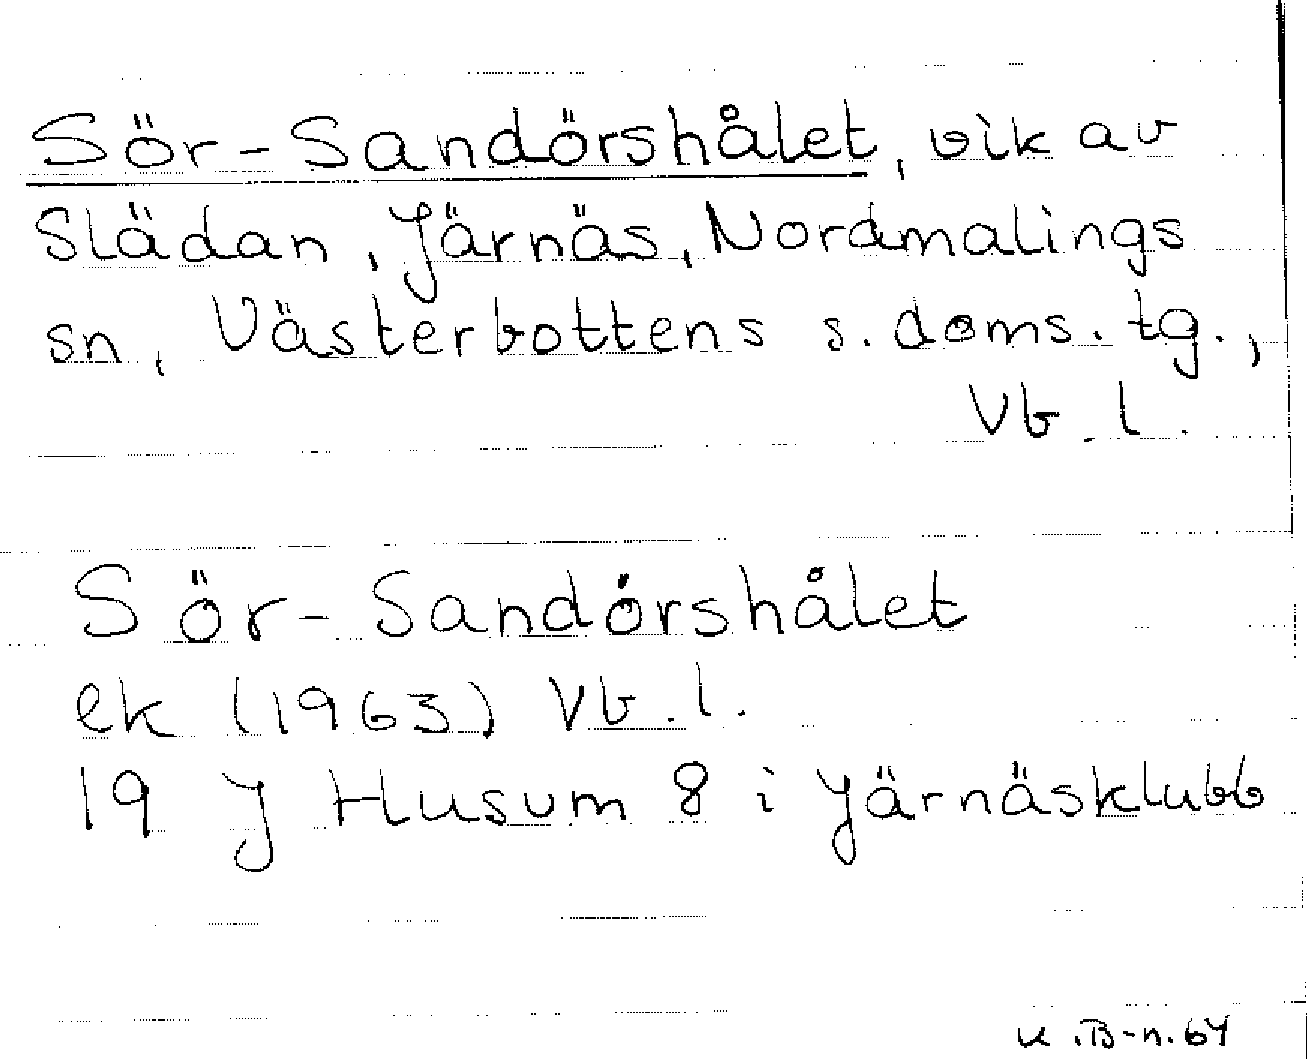 Sör-Sandörshålet, vik av
Slädan, Järnäs, Nordmalings
sn, Västerbottens s. doms. tg.,
Vb. l.
Sör-Sandörshålet
ek (1963) Vb. l.
19 J Husum 8 i Järnäsklubb
K.B-n. 64